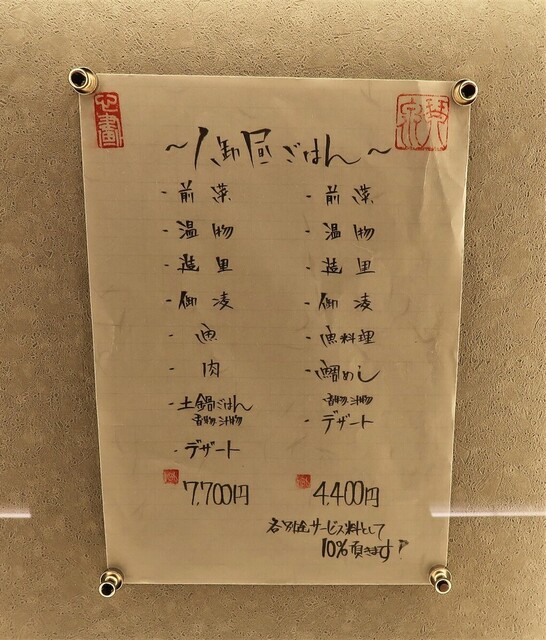 ~御昼ごはん~
・前菜
・温物
・造里
・御凌
・魚
・肉
・土鍋ごはん
香物・汁物
・デザート
7,700円
・前菜
・温物
・造里
・御凌
・魚料理
・鯛めし
香物・汁物
・デザート
4,400円
各別途サービス料として
10%頂きます